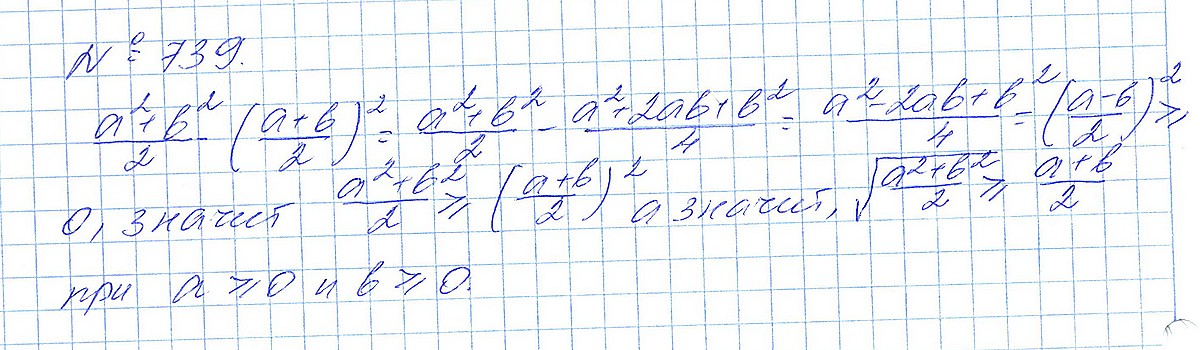 № 739.
(a²+b²)/2 - ((a+b)/2)² = (a²+b²)/2 - (a²+2ab+b²)/4 = (a²-2ab+b²)/4 = ((a-b)/2)² ⩾
0, значит (a²+b²)/2 ⩾ ((a+b)/2)² а значит, √((a²+b²)/2) ⩾ (a+b)/2
при a ⩾ 0 и b ⩾ 0.